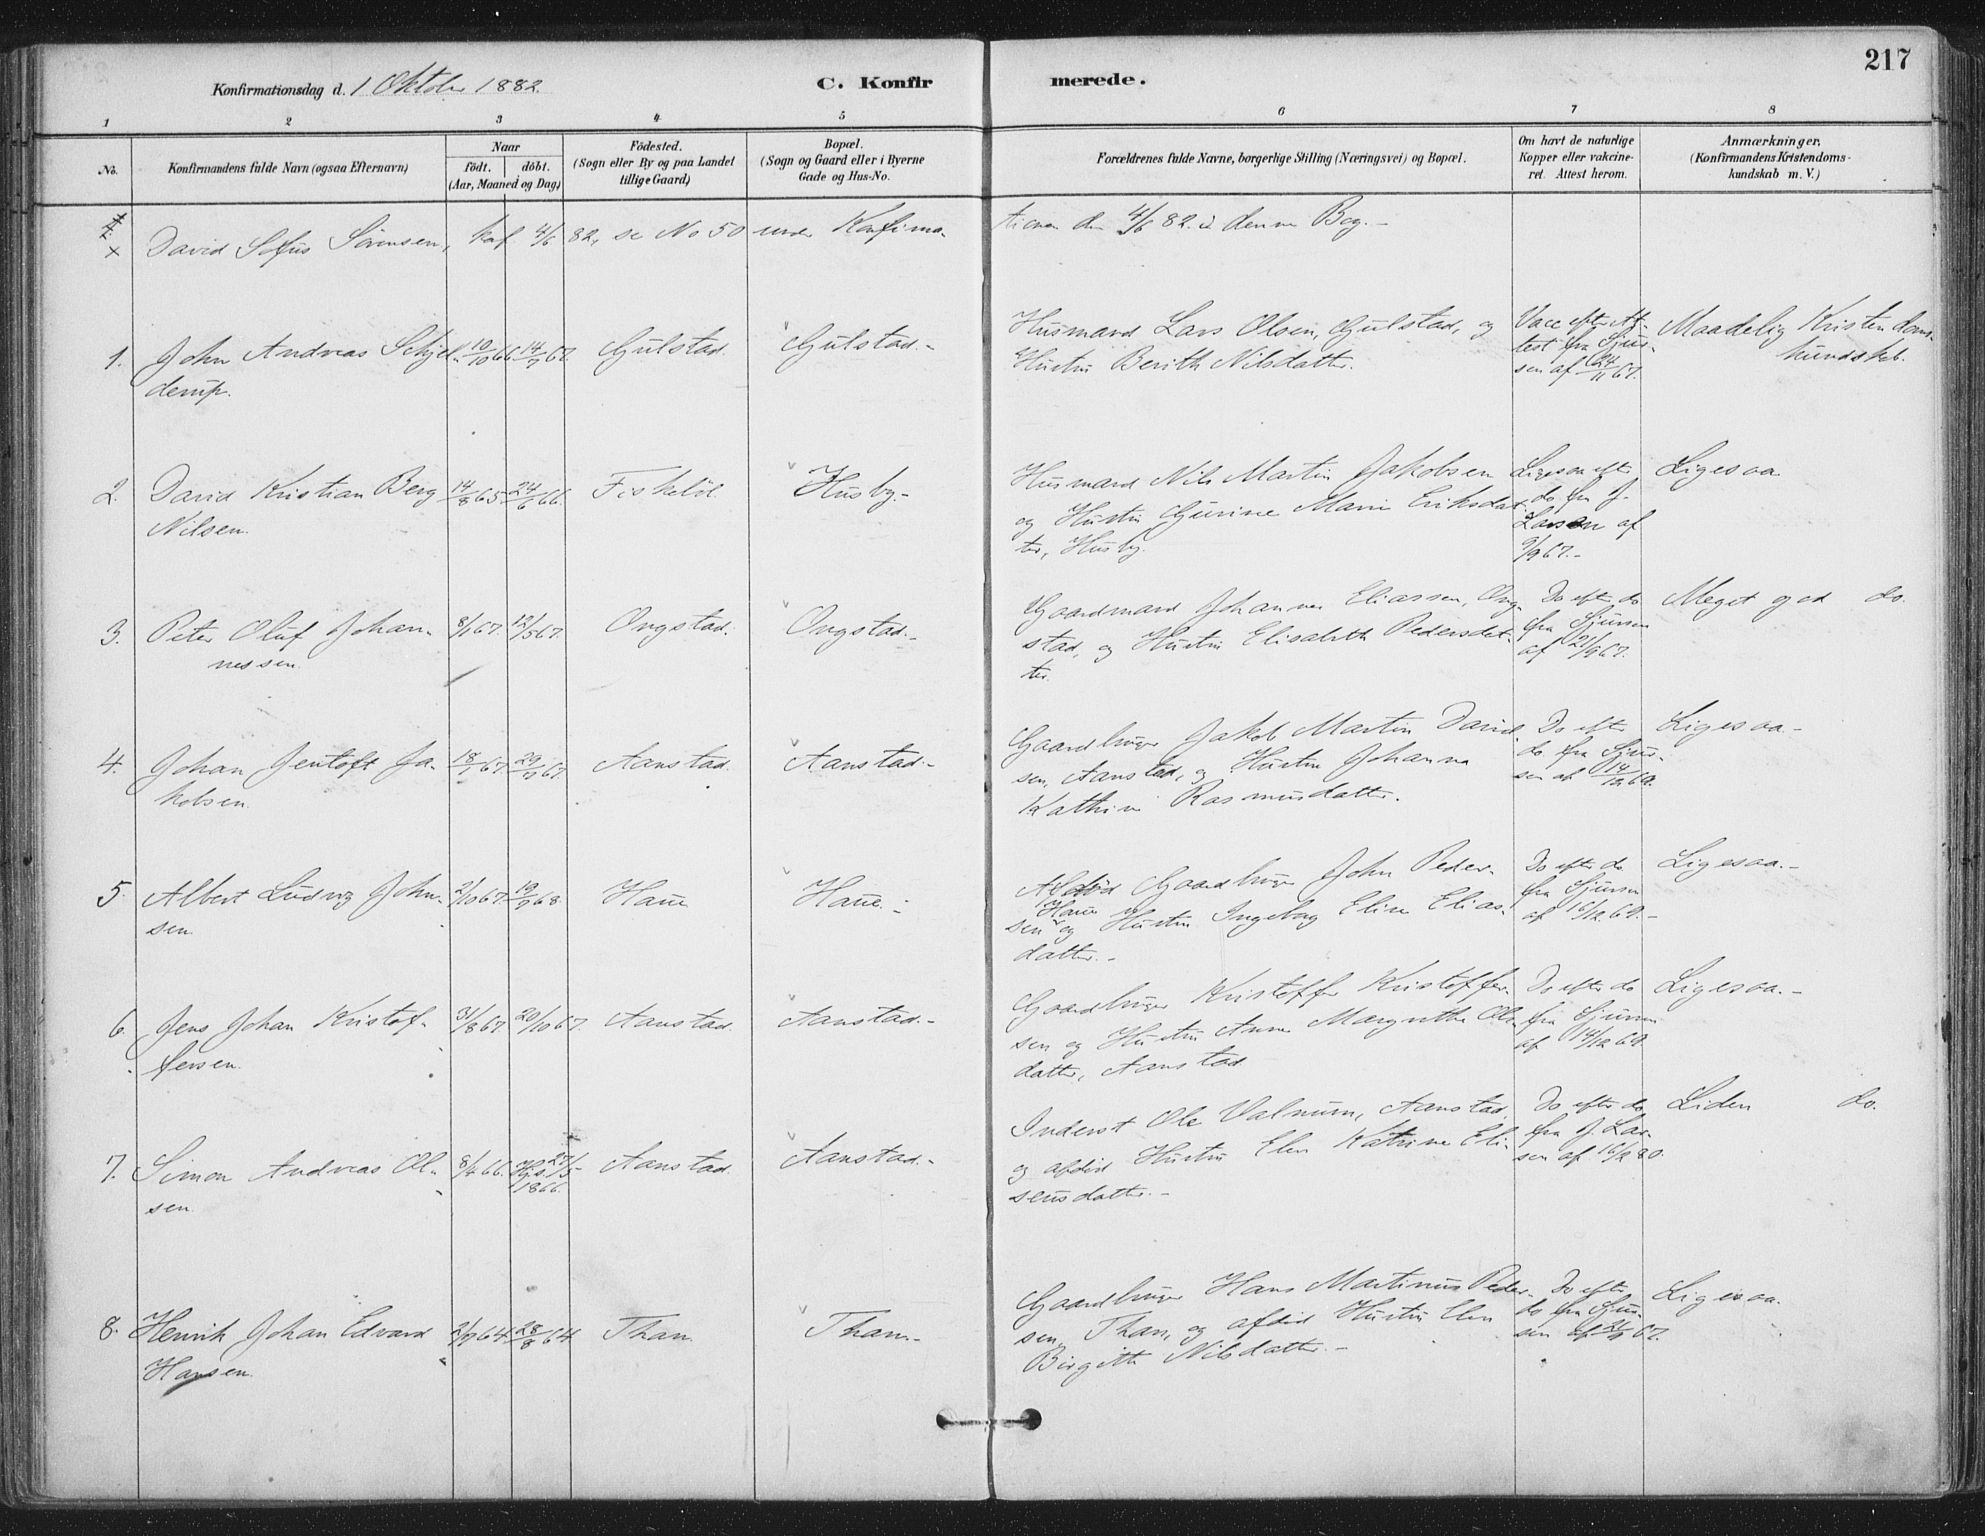 217
Konfirmationsdag d. 1 Oktober 1882.
C. Konfirmerede.
1 2 3 4 5 6 7 8
No.
Konfirmandens fulde Navn (ogsaa Efternavn)
Naar
Födt. döbt.
(Aar, Maaned og Dag)
Födested.
(Sogn eller By og paa Landet
tillige Gaard)
Bopæl.
(Sogn og Gaard eller i Byerne
Gade og Hus-No.
Forældrenes fulde Navne, borgerlige Stilling (Næringsvei) og Bopæl.
Om havt de naturlige
Kopper eller vakcine-
ret. Attest herom.
Anmærkninger,
(Konfirmandens Kristendoms-
kundskab m. V.)
x David Sofus Sörensen, kof 4/6 82, se No 50 under Konfirma-
tionen den 4/6 82 i denne Bog.-
1. John Andreas Schjel-
derup.
10/10 66. 14/7 67. Gulstad. Gulstad.-
Husmand Lars Olsen, Gulstad, og
Hustru Berith Nilsdatter.
Vacc efter At-
test fra Sjur-
sen af 24/11 67.
Maadelig Kristendoms-
kundskab.
2. David Kristian Berg
Nilsen.
14/8 65. 24/6 66. Husby.-
Husmand Nils Martin Jakobsen
og Hustru Gurine Marie Eriksdat-
ter, Husby.
Ligesaa efter
do fra J.
Larsen af
9/9 67.-
Ligesaa
3. Peter Oluf Johan-
nessen.
8/1 67. 12/5 67. Ongstad. Ongstad.-
Gaardmand Johannes Eliassen, Ong-
stad, og Hustru Elisabeth Pedersdat-
ter.
Do efter do
fra Sjursen
af 21/9 67.
Meget god do.
4. Johan Jentoft Ja-
kobsen.
18/1 67. Aanstad. Aanstad.-
Gaardbruger Jakob Martin David-
sen, Aanstad, og Hustru Johanna
Kathrine Rasmusdatter.
Do efter
do fra Sjur-
sen af 14/12 69.
Ligesaa.-
5. Albert Ludvig John-
sen.
2/10 67. 19/7 68. Haue Haue.-
Afdöd Gaardbruger John Peder-
sen Haue og Hustru Ingeborg Elise Elias-
datter.-
Do efter do
fra Sjursen
af 16/12 69.-
Ligesaa.-
6. Jens Johan Kristof-
fersen.
31/8 67. 20/10 67. Aanstad. Aanstad.-
Gaardbruger Kristoffer Kristoffer-
sen og Hustru Anne Margrethe Ols-
datter, Aanstad
Do efter do
fra Sjursen
af 14/12 69
Ligesaa.-
7. Simon Andreas Ol-
sen.
8/4 66. 27/5
1866.
Aanstad. Aanstad.-
Inderst Ole Valnum, Aanstad,
og afdöd Hustru Elen Katrine Eli-
sensdatter.-
Do efter do
fra J. Lar-
sen af 16/9 80.
Liden do.
8. Henrik Johan Edvard
Hansen.
2/7 64 28/8 64 Than. Than.-
Gaardbruger Hans Martinus Peder-
sen, Than, og afdöd Hustru Elen
Birgitte Nilsdatter.-
Do efter
do fra Sjur-
sen af 67.
Ligesaa.